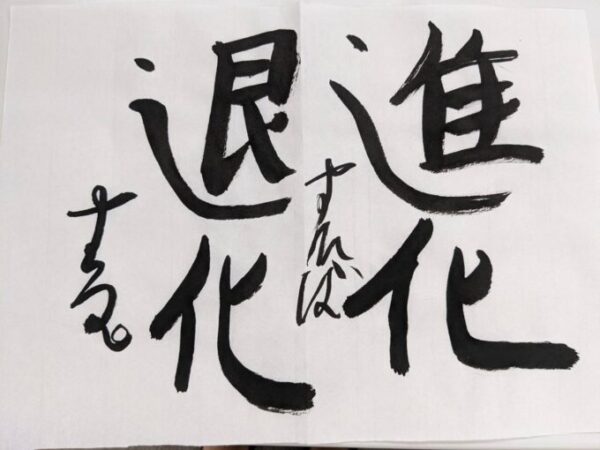 進化
すれば
退化
する。